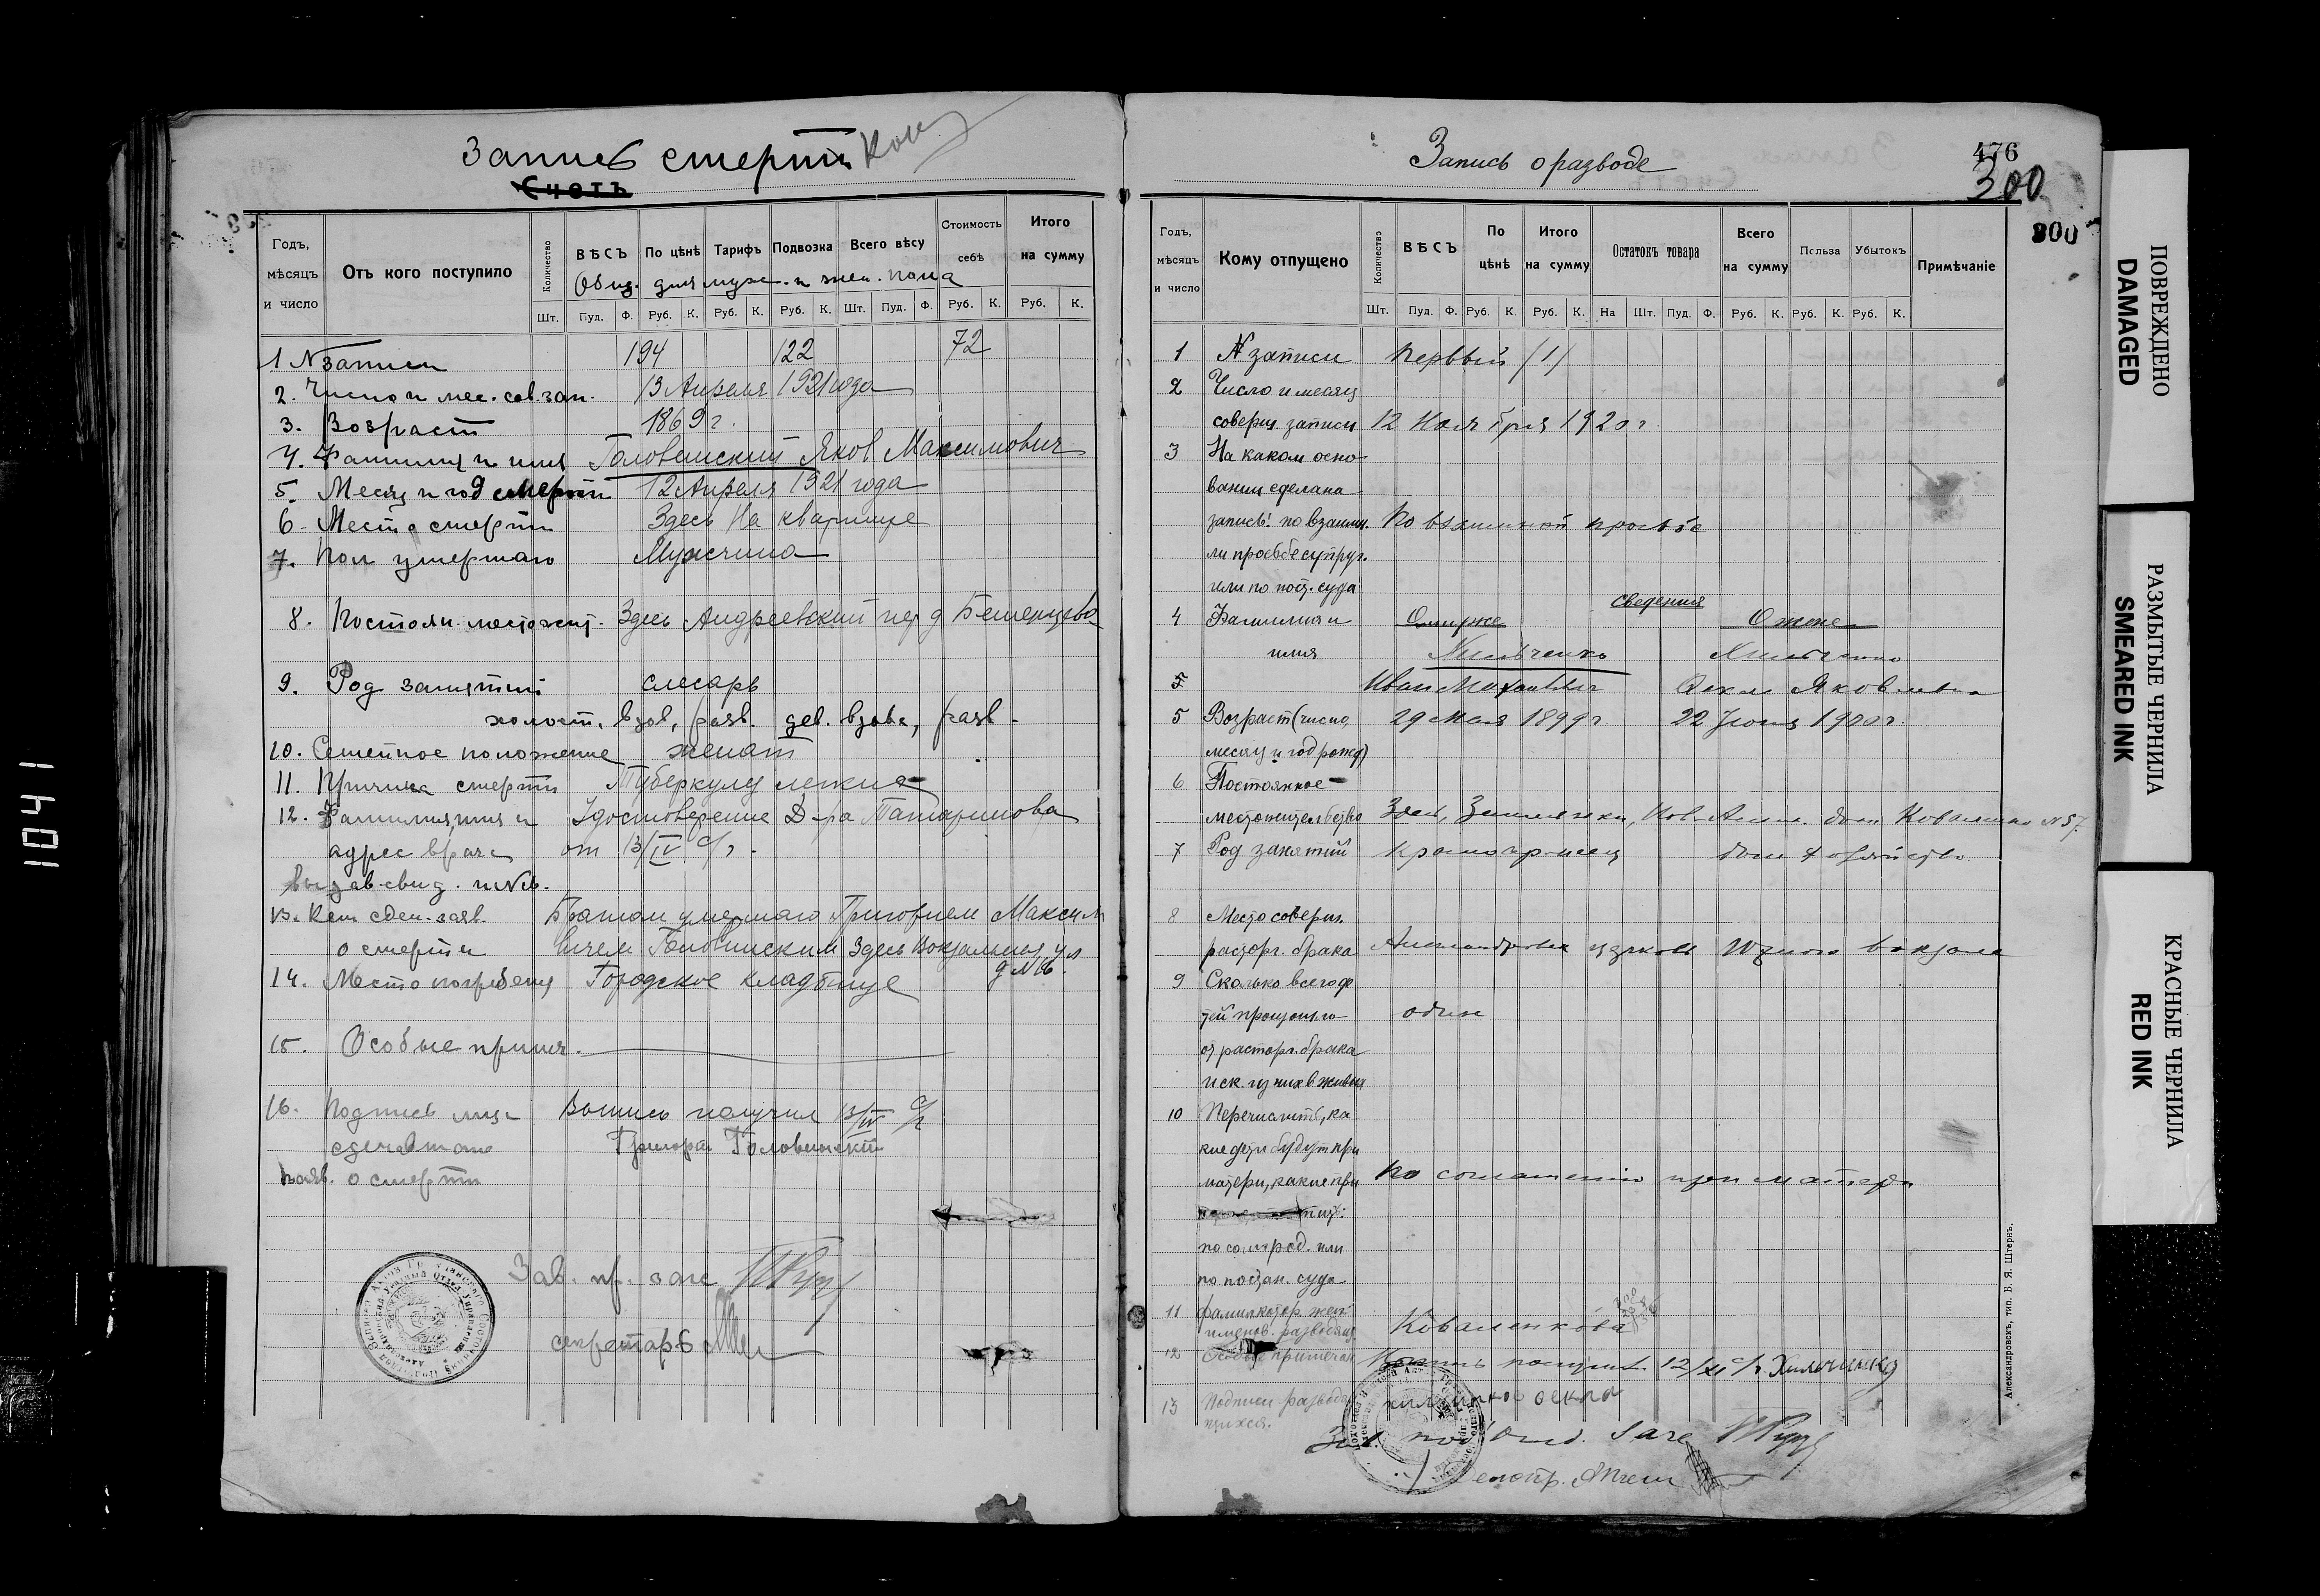 Запись смерти
Счетъ
Годъ, мѣсяцъ и число
Отъ кого поступило
Количество
ВѢСЪ
По цѣнѣ
Тарифъ
Подвозка
Всего вѣсу
Стоимость себѣ
Итого на сумму
Общ. для муж. и жен. пола
Шт. Пуд. Ф. Руб. К. Руб. К. Руб. К. Шт. Пуд. Ф. Руб. К. Руб. К.
1 N записи 194 122 72
2. Число и мес. сов. зап. 13 Апреля 1921 года
3. Возраст 1869 г.
4. Фамилия и имя Головинский Яков Максимович
5. Месяц и год смерти 12 Апреля 1921 года
6. Место смерти Здесь На квартире
7. Пол умершаго Мужчина
8. Постоян. местожит. Здесь Андреевский пер д
9. Род занятий слесарь
холост, вдов, разв. дев. вдова, разв.
10. Семейное положение женат
11. Причина смерти Туберкулез легких
12. Фамилия, имя и Удостоверение Д-ра Татаринова
адрес врача от 13/IV с/г.
выдав. свид. и №.
13. Кем сдел. заяв. Братом умершаго Григорием Макси
о смерти вичем Головинским Здесь Вокзальная ул
д №6.
14. Место погребения Городское кладбище
15. Особые примеч.
16. Подпись лица Выпись получил 13/IV с/г
сделавшаго Григорий Головинский
заяв. о смерти
Зав. п. загс
секретарь
Запись о разводе
476
300
300
Годъ, мѣсяцъ и число
Кому отпущено
Количество
ВѢСЪ
По цѣнѣ
Итого на сумму
Остатокъ товара
Всего на сумму
Польза
Убытокъ
Примѣчаніе
Шт. Пуд. Ф. Руб. К. Руб. К. На Шт. Пуд. Ф. Руб. К. Руб. К. Руб. К.
1 N записи первый (1)
2 Число и месяц
соверш. записи 12 Ноября 1920 г
3 На каком осно
вании сделана
запись: по взаимн. По взаимной просьбе
ли просьбе супруг.
или по пост. суда
сведения
4 Фамилия и О муже О жене
имя
5 Иван Яковлевна
5 Возраст (число, 29 Мая 1899 г 22 1900 г.
месяц и год рожд)
6 Постоянное
местожительство Здесь, дом N 57.
7 Род занятий красноармеец дом. хозяйство
8 Место соверш.
расторг. брака церковь Южного вокзала
9 Сколько всего де
тей произошло один
от расторг. брака
и ск. из них в живых
10 Перечислить, ка
кие дети будут при
матери, какие при По соглашению при матери
по согл. род. или
по постан. суда
11 Коваленкова
12 Особые примечан. получил 12/XI с/г.
13 Подписи разводя
щихся.
Зав. под'отд. Загс
Александровскъ, тип. Б. Я. Штернъ.
ПОВРЕЖДЕНО
DAMAGED
РАЗМЫТЫЕ ЧЕРНИЛА
SMEARED INK
КРАСНЫЕ ЧЕРНИЛА
RED INK
1401